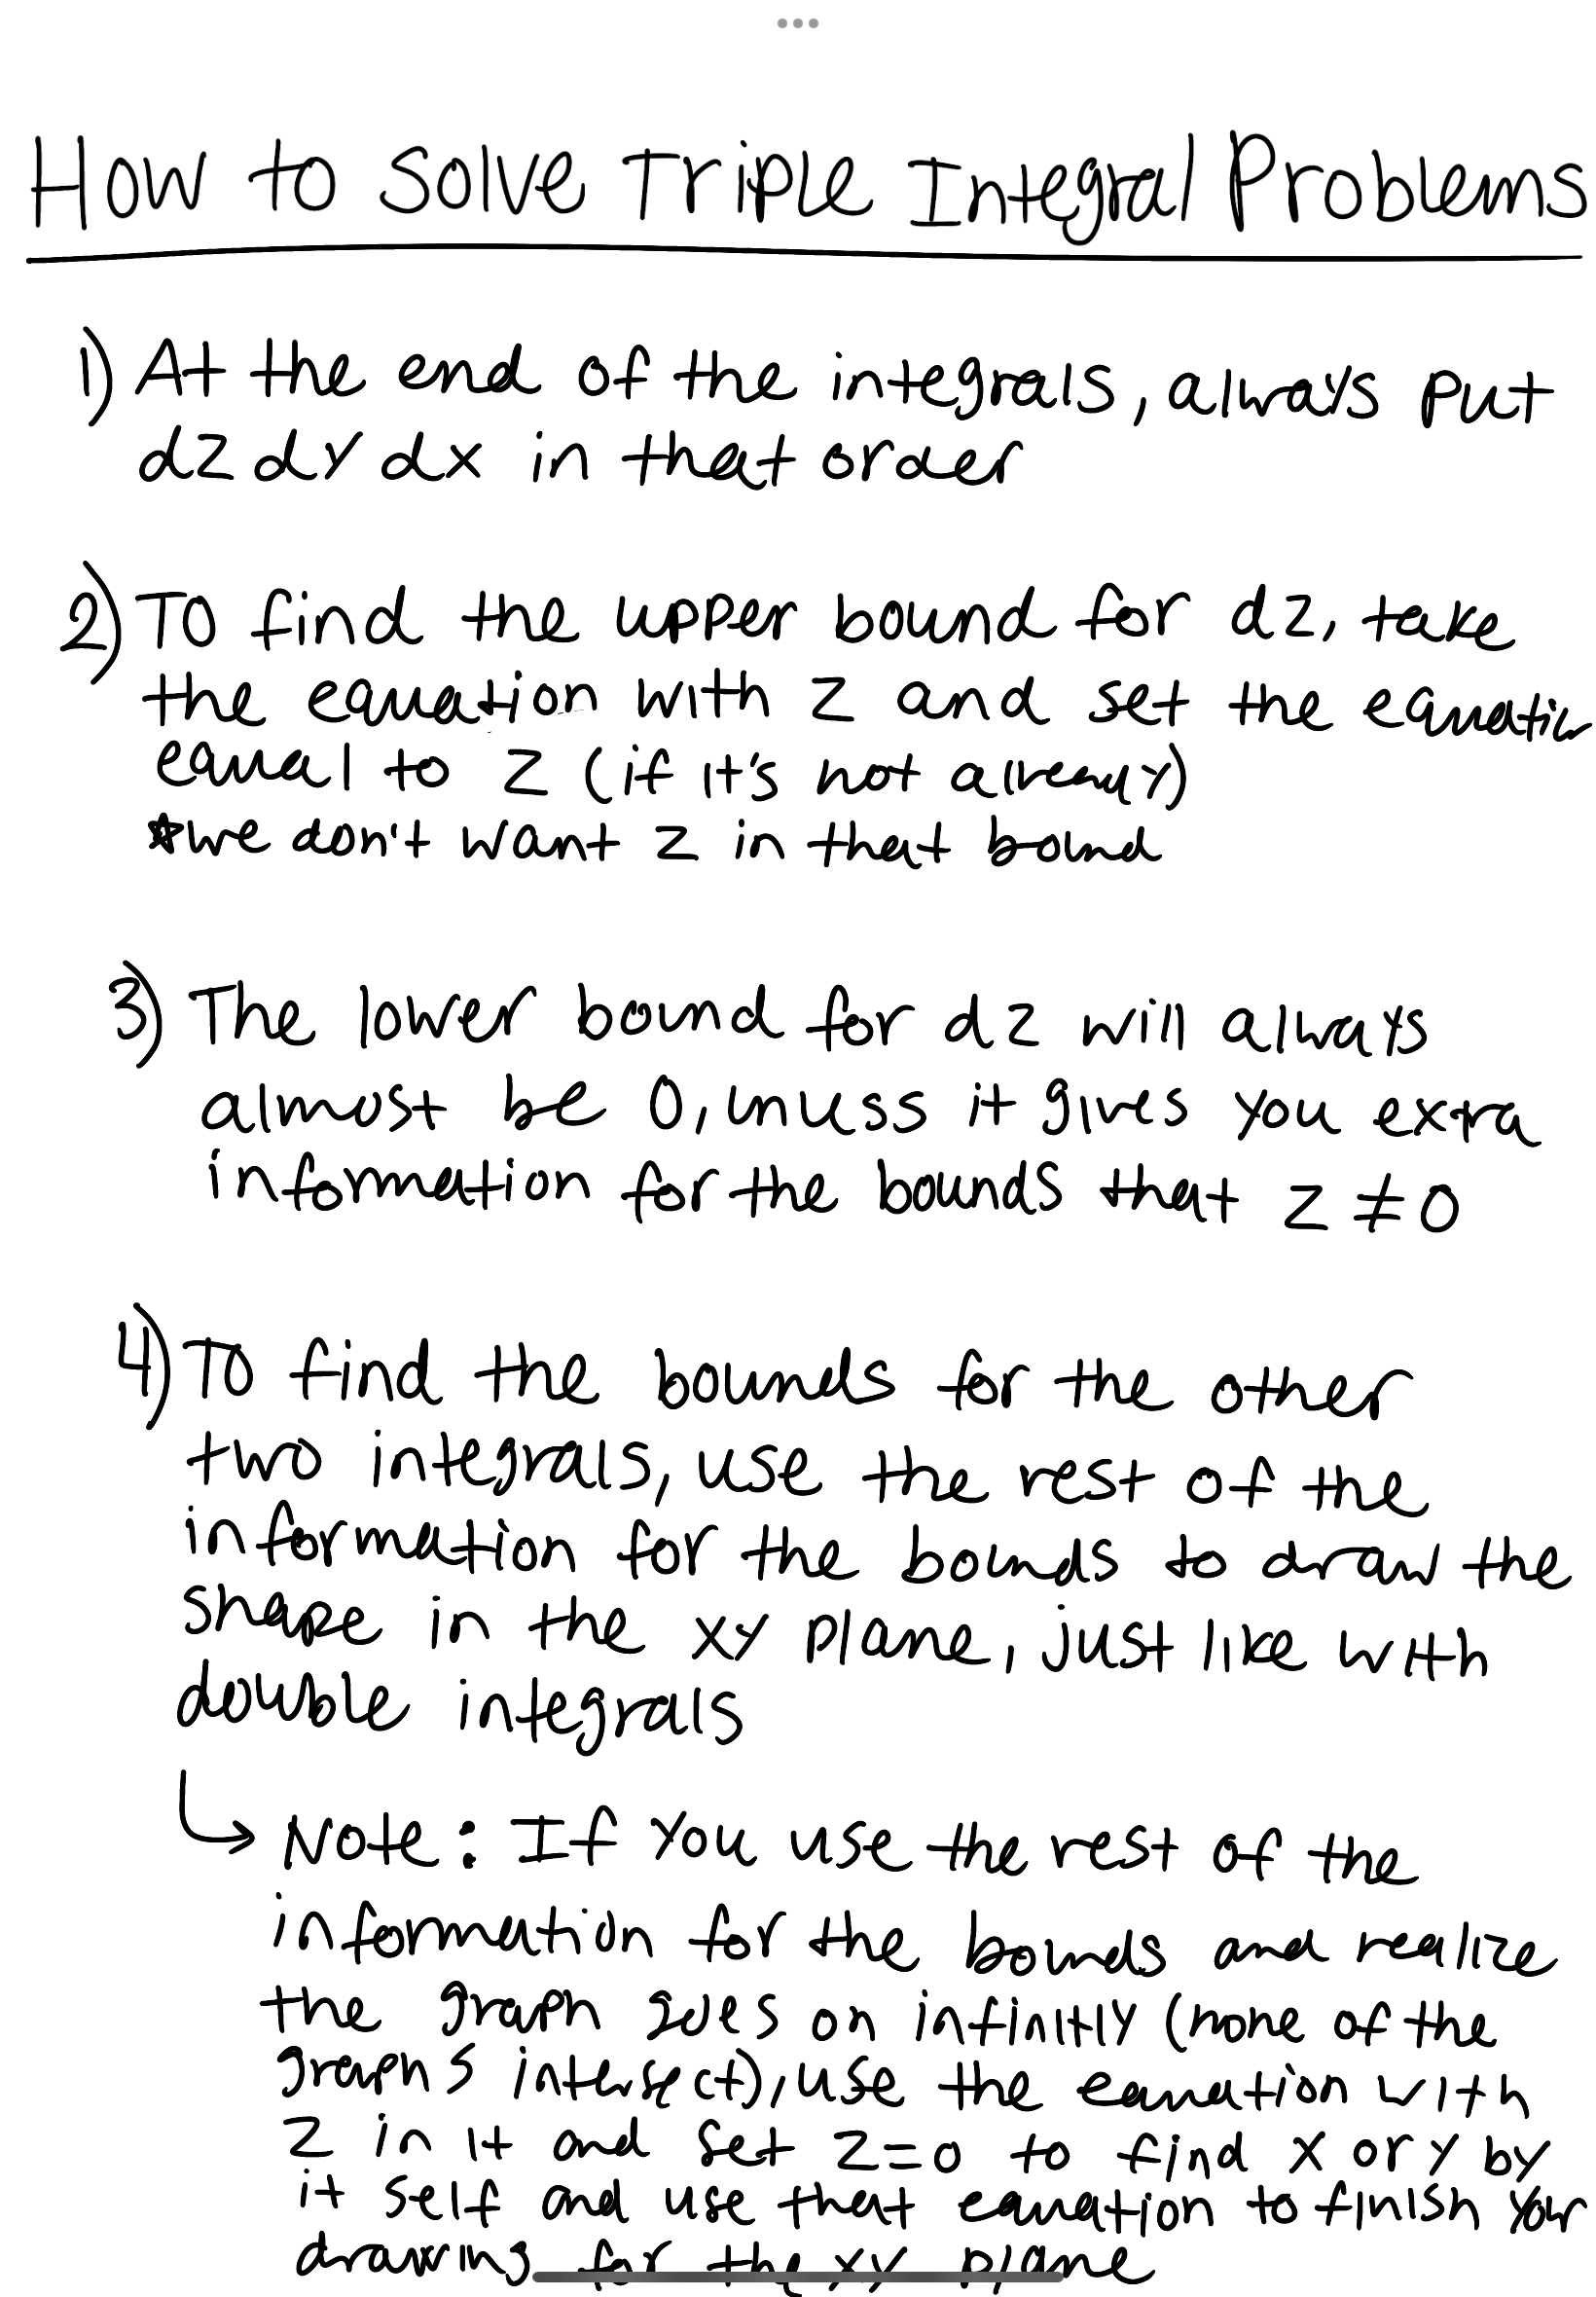 How to Solve Triple Integral Problems
1) At the end of the integrals, always put
dz dy dx in that order
2) To find the upper bound for dz, take
the equation with z and set the equation
equal to z (if it's not already)
*we don't want z in that bound
3) The lower bound for dz will always
almost be 0, unuss it gives you extra
information for the bounds that z ≠ 0
4) To find the bounds for the other
two integrals, use the rest of the
information for the bounds to draw the
shape in the xy plane, just like with
double integrals
↳ Note: If you use the rest of the
information for the bounds and realize
the graph goes on infinitly (none of the
graphs intersect), use the equation with
z in it and set z=0 to find x or y by
it self and use that equation to finish your
drawing for the xy plane